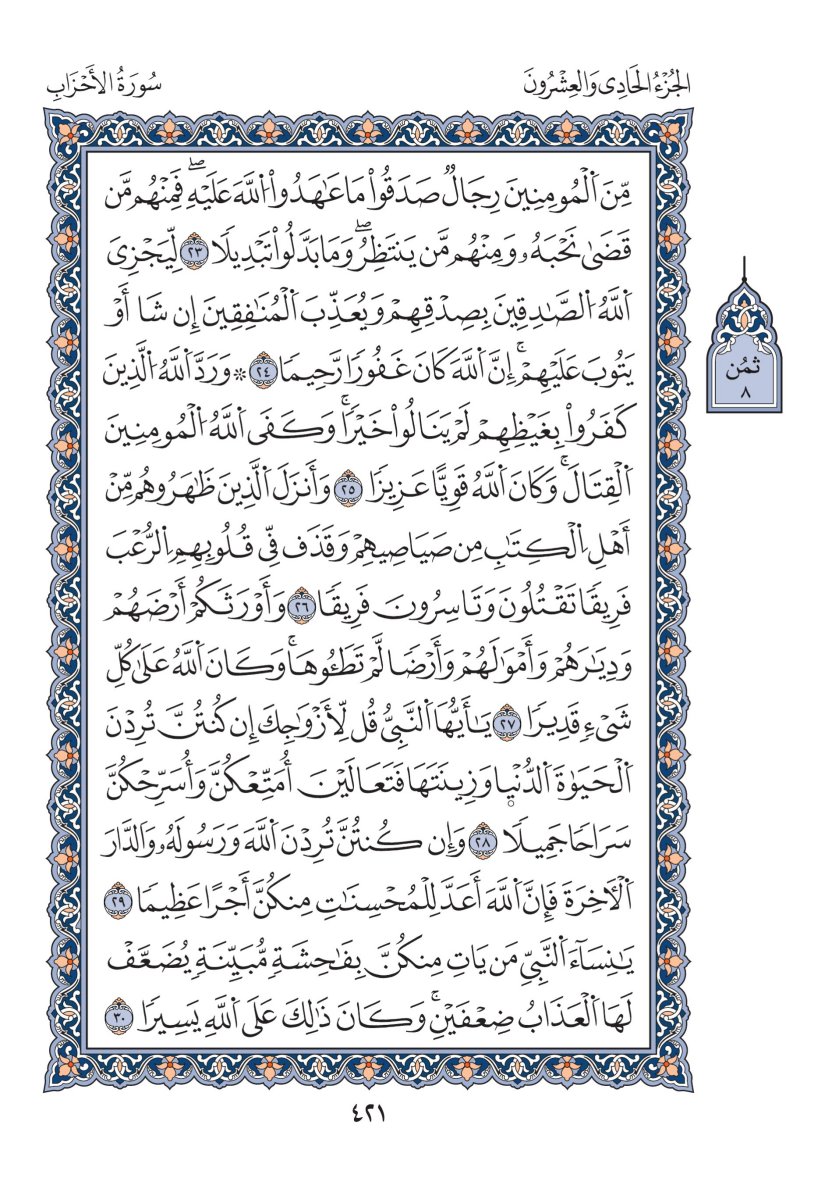 الجُزْءُ الحَادِى وَالعِشْرُونَ
سُورَةُ الأَحْزَابِ
مِّنَ اَ۬لْمُومِنِينَ رِجَالٌ صَدَقُواْ مَا عَٰهَدُواْ اُ۬للَّهَ عَلَيْهِۖ فَمِنْهُم مَّن
قَضَىٰ نَحْبَهُۥ وَمِنْهُم مَّن يَنتَظِرُۖ وَمَا بَدَّلُواْ تَبْدِيلًا ٢٣ لِّيَجْزِىَ
اَ۬للَّهُ اُ۬لصَّٰدِقِينَ بِصِدْقِهِمْ وَيُعَذِّبَ اَ۬لْمُنَٰفِقِينَ إِن شَا أَوْ
يَتُوبَ عَلَيْهِمْۚ إِنَّ اَ۬للَّهَ كَانَ غَفُورًا رَّحِيمًا ٢٤ * وَرَدَّ اَ۬للَّهُ اُ۬لَّذِينَ
كَفَرُواْ بِغَيْظِهِمْ لَمْ يَنَالُواْ خَيْرًاۚ وَكَفَى اَ۬للَّهُ اُ۬لْمُومِنِينَ
اَ۬لْقِتَالَۚ وَكَانَ اَ۬للَّهُ قَوِيًّا عَزِيزًا ٢٥ وَأَنزَلَ اَ۬لَّذِينَ ظَٰهَرُوهُم مِّنْ
أَهْلِ اِ۬لْكِتَٰبِ مِن صَيَاصِيهِمْ وَقَذَف فِّى قُلُوبِهِمِ اِ۬لرُّعْبَ
فَرِيقًا تَقْتُلُونَ وَتَاسِرُونَ فَرِيقًا ٢٦ وَأَوْرَثَكُمْ أَرْضَهُمْ
وَدِيَٰرَهُمْ وَأَمْوَٰلَهُمْ وَأَرْضًا لَّمْ تَطَـُٔوهَاۚ وَكَانَ اَ۬للَّهُ عَلَىٰ كُلِّ
شَىْءٍ قَدِيرًا ٢٧ يَٰأَيُّهَا اَ۬لنَّبِىُّ قُل لِّأَزْوَٰجِكَ إِن كُنتُنَّ تُرِدْنَ
اَ۬لْحَيَوٰةَ اَ۬لدُّنْيا وَزِينَتَهَا فَتَعَالَيْنَ أُمَتِّعْكُنَّ وَأُسَرِّحْكُنَّ
سَرَاحًا جَمِيلًا ٢٨ وَإِن كُنتُنَّ تُرِدْنَ اَ۬للَّهَ وَرَسُولَهُۥ وَالدَّارَ
اَ۬لْأٓخِرَةَ فَإِنَّ اَ۬للَّهَ أَعَدَّ لِلْمُحْسِنَٰتِ مِنكُنَّ أَجْرًا عَظِيمًا ٢٩
يَٰنِسَآءَ اَ۬لنَّبِىِّ مَن يَاتِ مِنكُنَّ بِفَٰحِشَةٍ مُّبَيِّنَةٍ يُضَعَّفْ
لَهَا اَ۬لْعَذَابُ ضِعْفَيْنِۚ وَكَانَ ذَٰلِكَ عَلَى اَ۬للَّهِ يَسِيرًا ٣٠
ثُمُن
٨
٤٢١